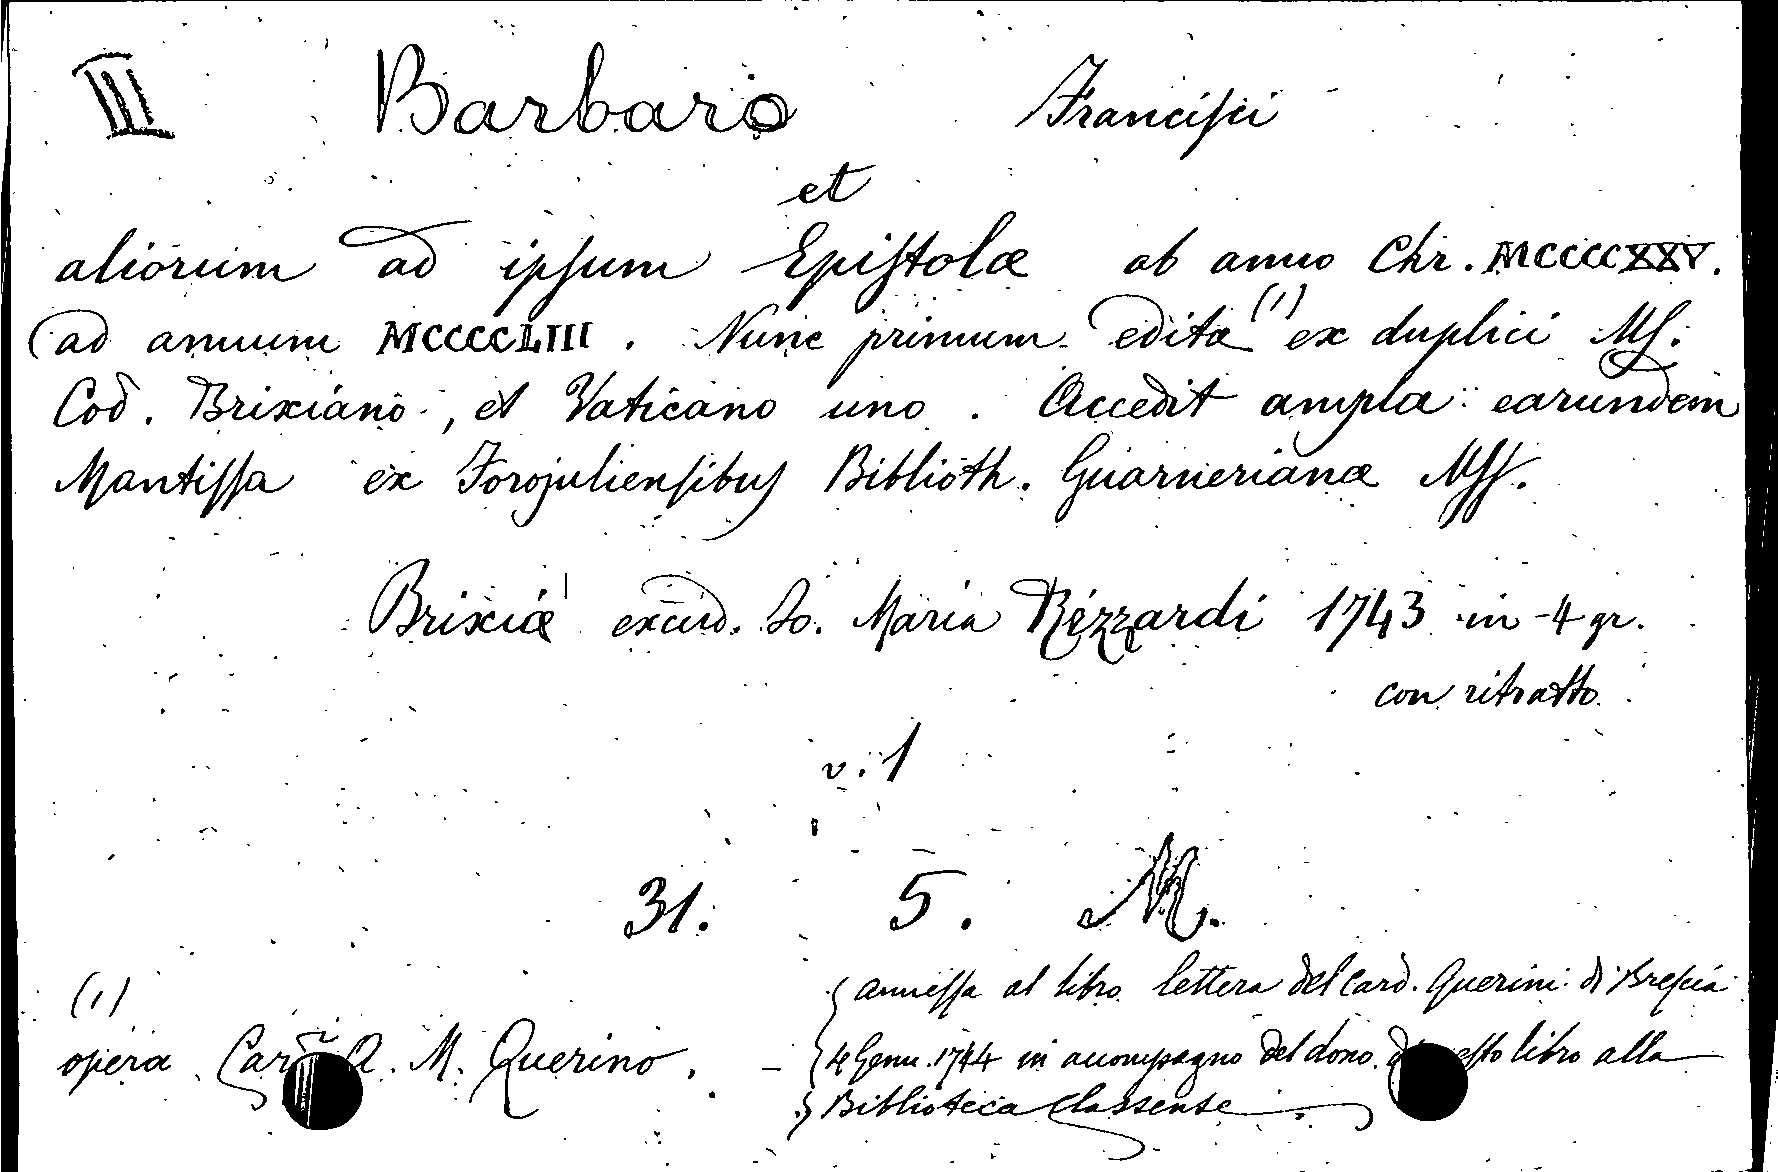 III Barbaro Franciſci
et
aliorum ad ipſum Epiſtolæ ab anno Chr. MCCCCXXV.
ad annum MCCCCLIII. Nunc primum editæ (1) ex duplici Mſ.
Cod. Brixiano, et Vaticano uno. Accedit ampla earundem
Mantiſſa ex Forojulienſibuſ Biblioth. Guarnerianæ Mſſ.
Brixiæ excud. Jo. Maria Rizzardi 1743 in-4 gr.
con ritratto.
v. 1
31. 5. M.
(1)
opera A. M. Querino. –
anneſſa al libro lettera del Card. Querini di Breſcia
4 Genn. 1744 in accompagno del dono libro alla
Biblioteca Classense.